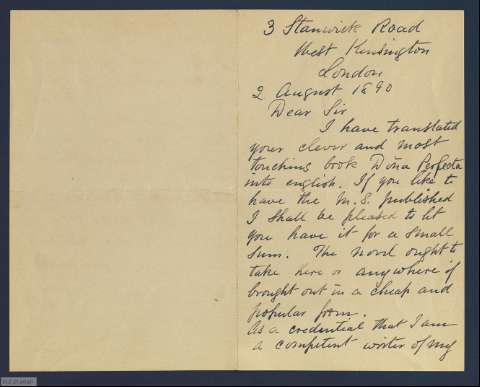 3 Stanwick Road
West Kensington
London
2 August 1890
Dear Sir
I have translated
your clever and most
touching book Doña Perfecta
into english. If you like to
have the M.S. published
I shall be pleased to let
you have it for a small
sum. The novel ought to
take here or anywhere if
brought out in a cheap and
popular form.
As a credential that I am
a competent writer of my